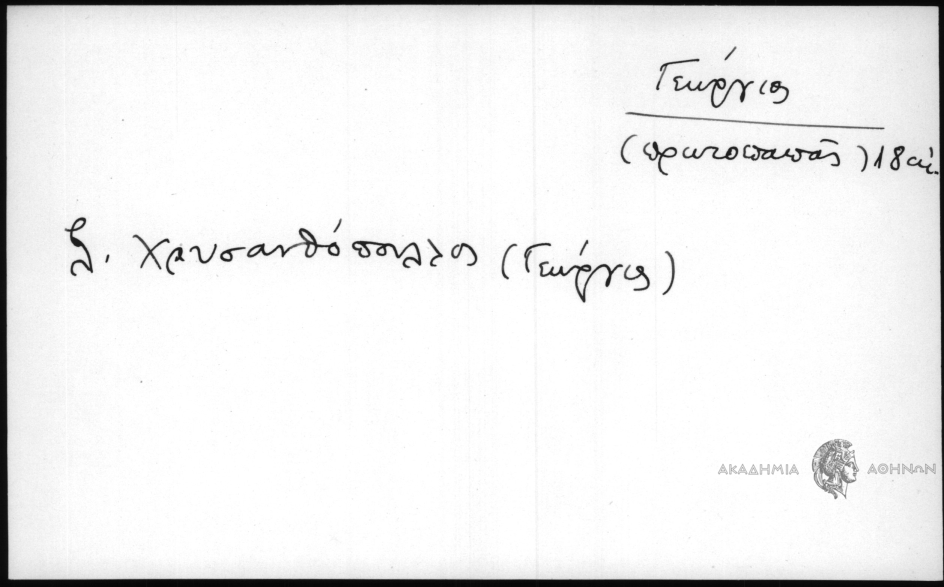 Γεώργιος
(πρωτοπαπᾶς) 18 αἰ.
Χρυσανθόπουλος (Γεώργιος)
ΑΚΑΔΗΜΙΑ ΑΘΗΝΩΝ